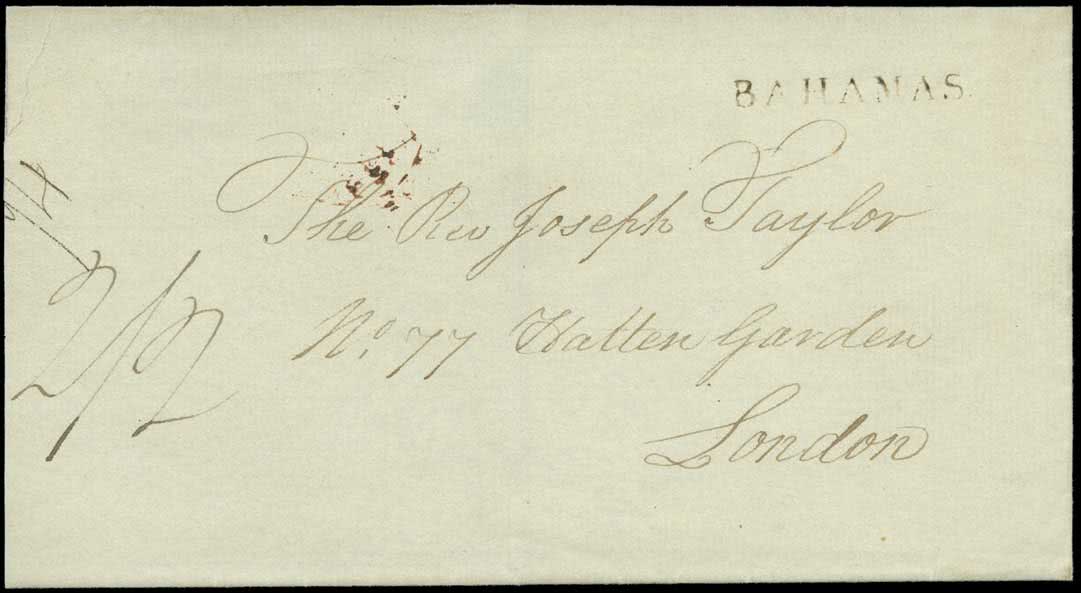 BAHAMAS
The Rev Joseph Taylor
No. 77 Hatten Garden
London
2/2